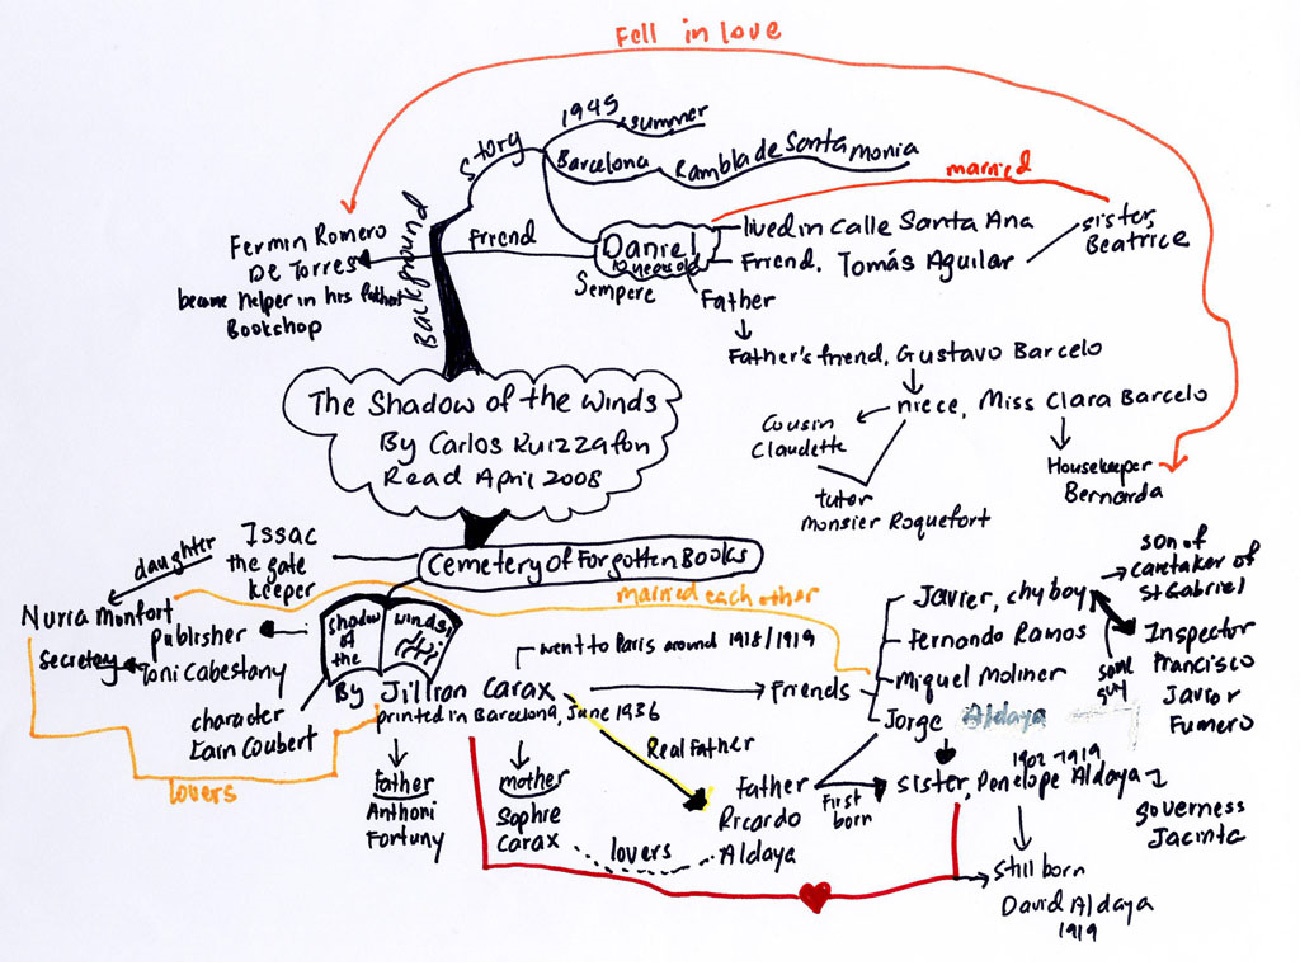 Fell in love
1945 summer
Story
Barcelona Rambla de Santa Monia
married
Background
Fermin Romero
De Torres
became helper in his father
Bookshop
Friend
Daniel
Sempere
lived in Calle Santa Ana
Friend, Tomás Aguilar
sister,
Beatrice
Father
Father's friend, Gustavo Barcelo
niece, Miss Clara Barcelo
Cousin
Claudette
tutor
Monsier Roquefort
Housekeeper
Bernarda
The Shadow of the Winds
By Carlos Ruizzafon
Read April 2008
Cemetery of Forgotten Books
Issac
the gate
keeper
daughter
Nuria Monfort
married each other
Publisher
Toni Cabestany
Secretary
Shadow
of
the
winds
By Jillian Carax
printed in Barcelona, June 1936
character
Lain Coubert
lovers
went to Paris around 1918/1919
Friends
Javier, chy boy
Fernando Ramos
Miquel Moliner
Jorge Aldaya
son of
caretaker of
St Gabriel
same
guy
Inspector
Francisco
Javior
Fumero
Father
Anthoni
Fortuny
mother
Sophie
Carax
lovers
Real Father
Father
Ricardo
Aldaya
First
born
1902-1919
sister, Penelope Aldaya
Governess
Jacinta
still born
David Aldaya
1919